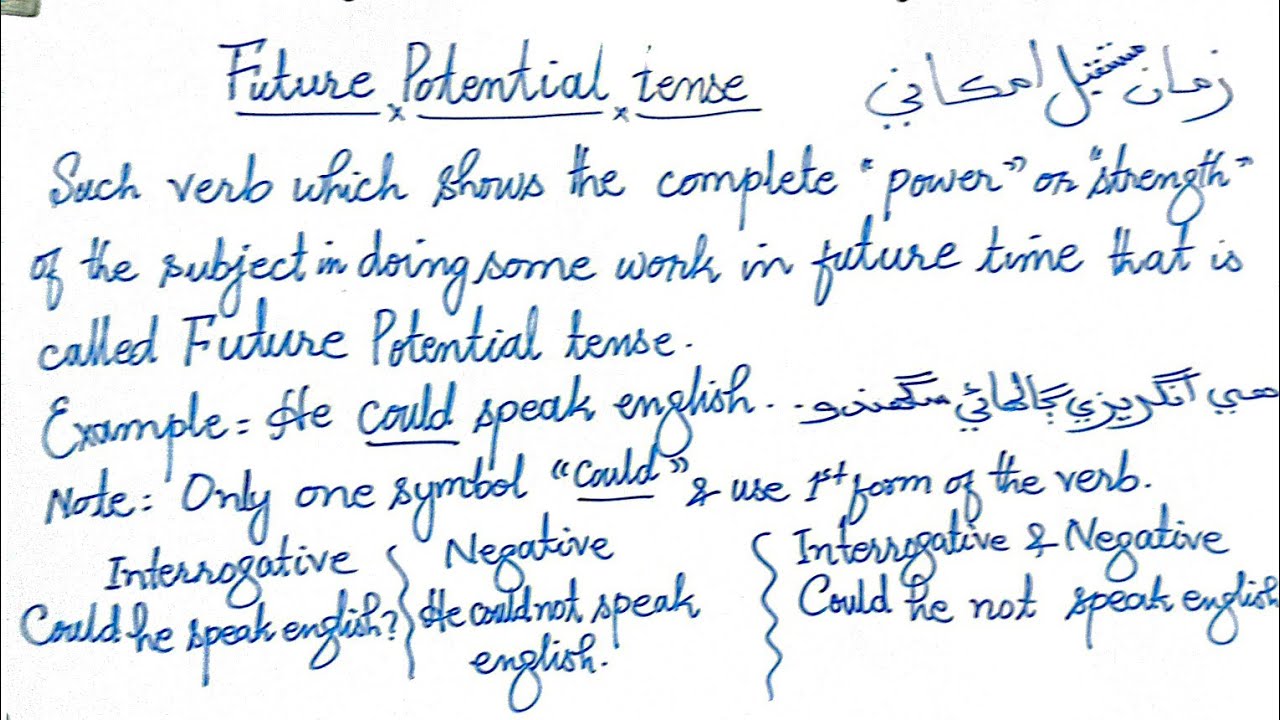 Future Potential tense زمان مستقبل امڪاني
Such verb which shows the complete "power" or "strength"
of the subject in doing some work in future time that is
called Future Potential tense.
Example = He could speak english. هي انگريزي ڳالهائي سگهندو.
Note: Only one symbol "Could" & use 1st form of the verb.
Interrogative
Could he speak english?
Negative
He could not speak
english.
Interrogative & Negative
Could he not speak english